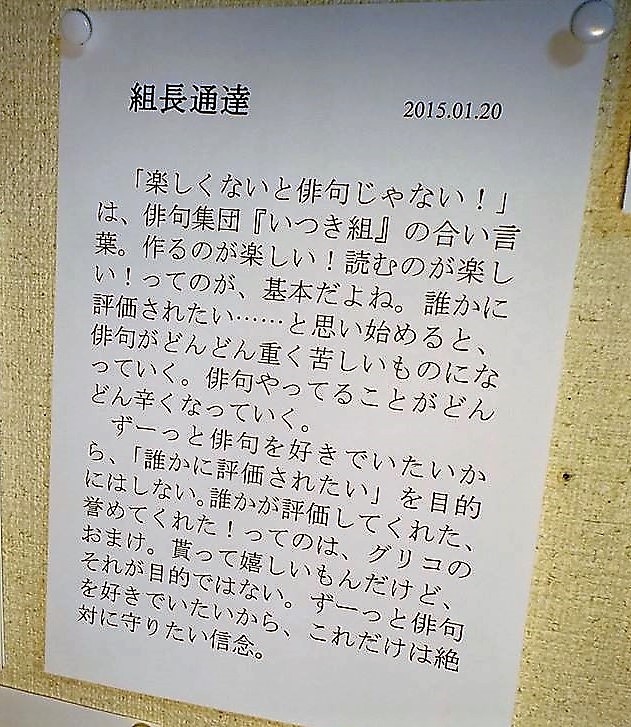 組長通達
2015.01.20
「楽しくないと俳句じゃない！」
は、俳句集団『いつき組』の合い言
葉。作るのが楽しい！読むのが楽し
い！ってのが、基本だよね。誰かに
評価されたい……と思い始めると、
俳句がどんどん重く苦しいものにな
っていく。俳句やってることがどん
どん辛くなっていく。
ずーっと俳句を好きでいたいか
ら、「誰かに評価されたい」を目的
にはしない。誰かが評価してくれた、
誉めてくれた！ってのは、グリコの
おまけ。貰って嬉しいもんだけど、
それが目的ではない。ずーっと俳句
を好きでいたいから、これだけは絶
対に守りたい信念。